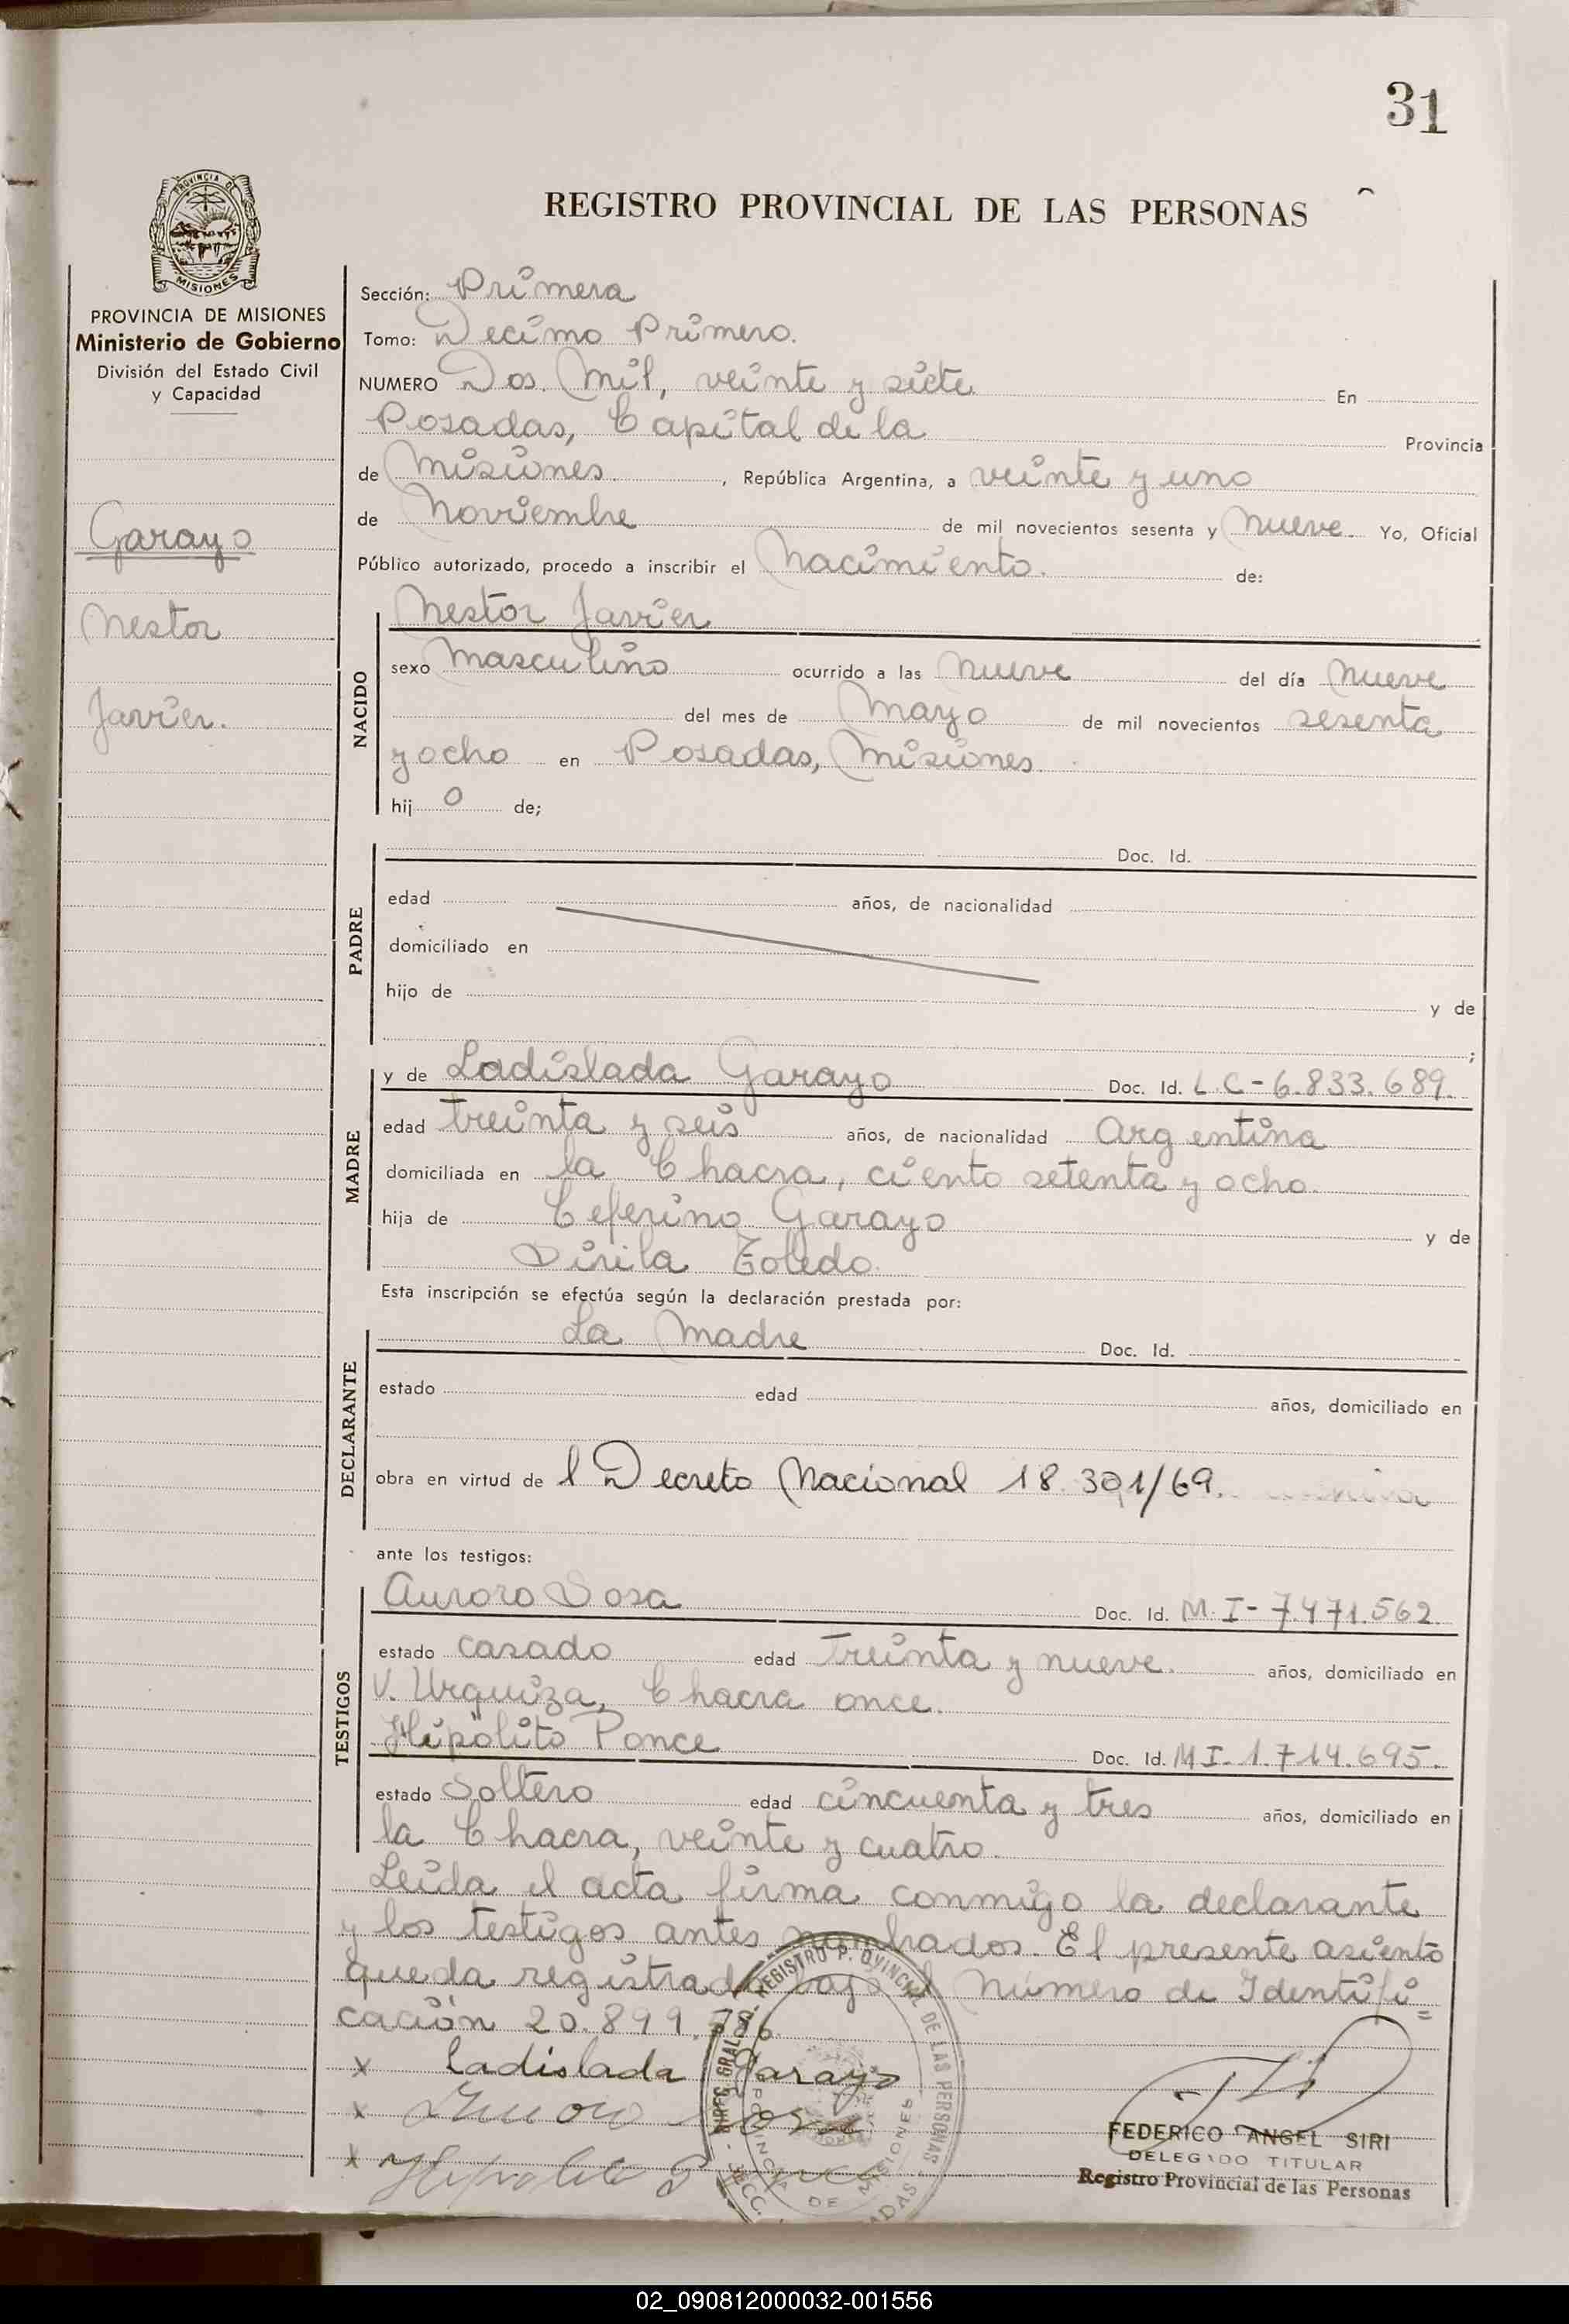 31
REGISTRO PROVINCIAL DE LAS PERSONAS
PROVINCIA DE MISIONES
PROVINCIA DE MISIONES
Ministerio de Gobierno
División del Estado Civil
y Capacidad
Garayo
Nestor
Javier.
Sección: Primera
Tomo: Decimo Primero.
NUMERO Dos Mil, veinte y siete En
Posadas, Capital de la Provincia
de Misiones , República Argentina, a veinte y uno
de Noviembre de mil novecientos sesenta y nueve. Yo, Oficial
Público autorizado, procedo a inscribir el Nacimiento. de:
NACIDO
Nestor Javier
sexo Masculino ocurrido a las nueve del día nueve
del mes de Mayo de mil novecientos sesenta
y ocho en Posadas, Misiones.
hij o de;
PADRE
Doc. Id.
edad años, de nacionalidad
domiciliado en
hijo de y de
;
MADRE
y de Ladislada Garayo Doc. Id. L.C-6.833.689.
edad treinta y seis años, de nacionalidad Argentina
domiciliada en la Chacra, ciento setenta y ocho.
hija de Ceferino Garayo y de
Toledo.
Esta inscripción se efectúa según la declaración prestada por:
DECLARANTE
La Madre Doc. Id.
estado edad años, domiciliado en
obra en virtud de l Decreto Nacional 18.301/69.
ante los testigos:
TESTIGOS
Auroro Sosa Doc. Id. M.I-7.471.562.
estado casado edad treinta y nueve. años, domiciliado en
V. Urquiza, Chacra once.
Hipólito Ponce Doc. Id. M I-1.714.695.
estado Soltero edad cincuenta y tres años, domiciliado en
la Chacra, veinte y cuatro.
Leída el acta firma conmigo la declarante
y los testigos antes nombrados. El presente asiento
queda registrado bajo el Número de Identifi=
cación 20.899.786.
x Ladislada Garayo
x Sosa
x Hipolito Ponce
DIREC. GRAL. REGISTRO PROVINCIAL DE LAS PERSONAS
PROVINCIA DE MISIONES
FEDERICO ANGEL SIRI
DELEGADO TITULAR
Registro Provincial de las Personas
02_090812000032-001556